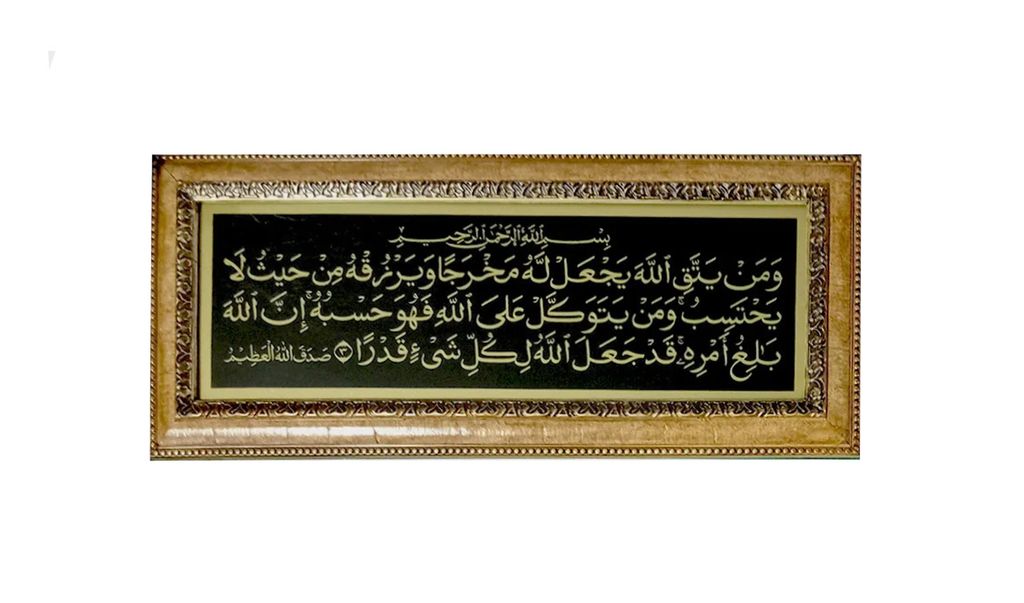 بِسْمِ اللَّهِ الرَّحْمَٰنِ الرَّحِيمِ
وَمَنْ يَتَّقِ ٱللَّهَ يَجْعَلْ لَهُ مَخْرَجًا وَيَرْزُقْهُ مِنْ حَيْثُ لَا
يَحْتَسِبُ ۚ وَمَنْ يَتَوَكَّلْ عَلَى ٱللَّهِ فَهُوَ حَسْبُهُ ۚ إِنَّ ٱللَّهَ
بَٰلِغُ أَمْرِهِ ۚ قَدْ جَعَلَ ٱللَّهُ لِكُلِّ شَىْءٍ قَدْرًا ٣ صَدَقَ اللهُ الْعَظِيمُ